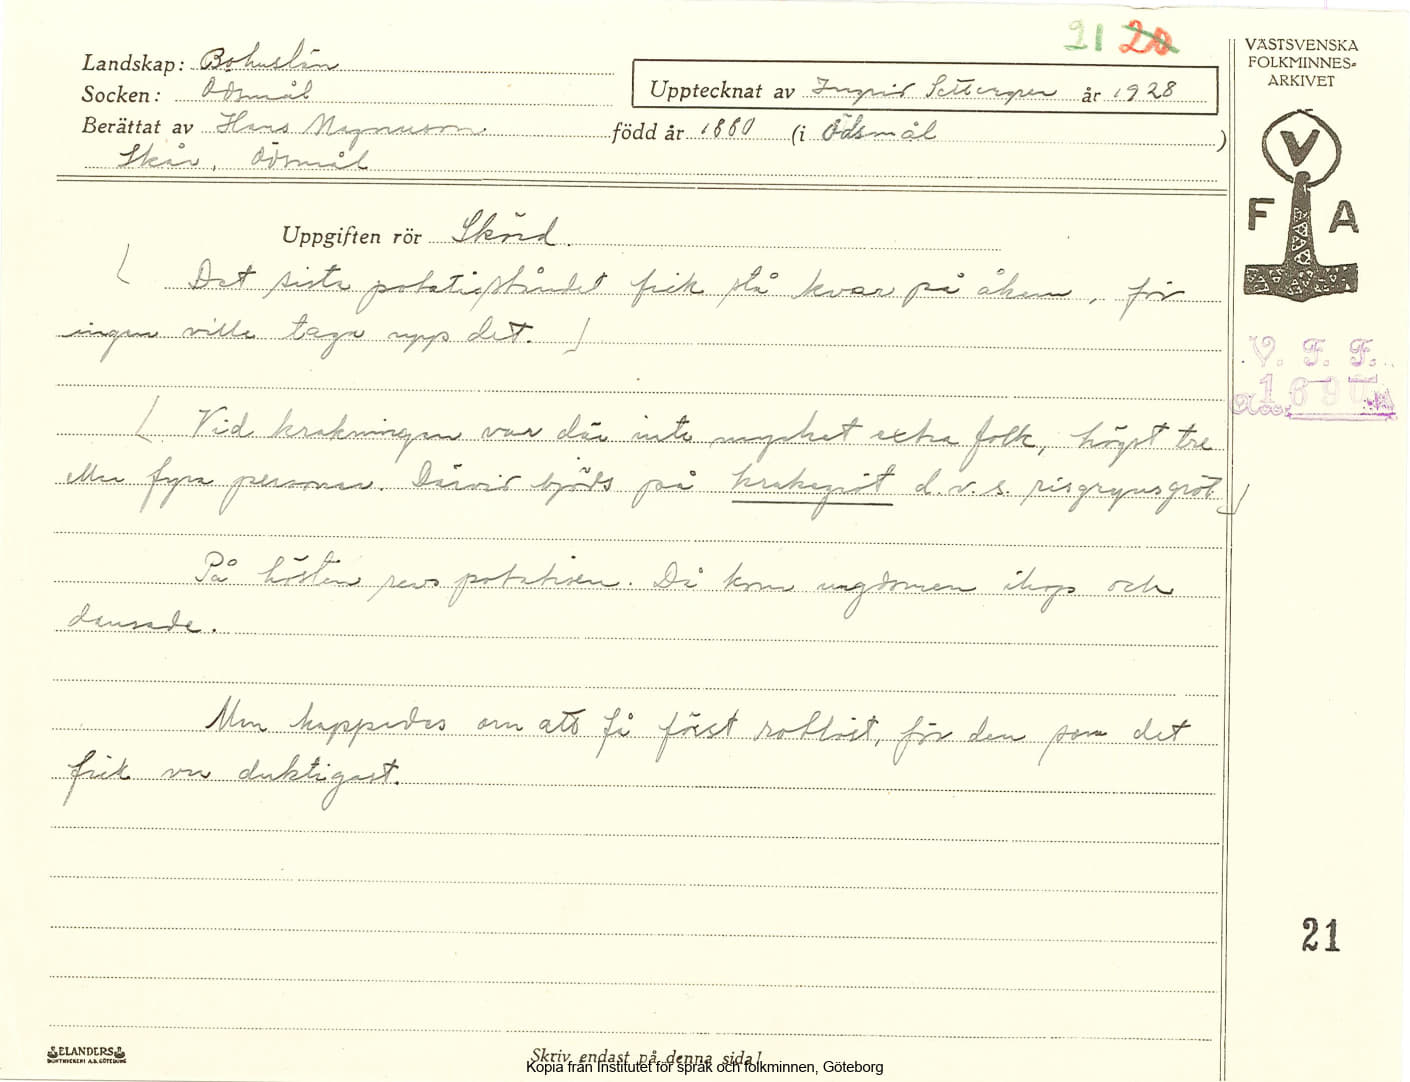 21 20
VÄSTSVENSKA
FOLKMINNES-
ARKIVET
Landskap: Bohuslän
Socken: Ödsmål
Upptecknat av Ingrid år 1928
Berättat av Hans Magnuson född år 1880 (i Ödsmål )
Skår, Ödsmål
V
F A
Uppgiften rör Skörd.
Det sista potatisståndet fick stå kvar på åkern, för
ingen ville taga upp det.
V. F. F.
Acc.
Vid krakningen var där inte mycket extra folk, högst tre
eller fyra personer. Därvid bjöds på krakegröt d.v.s. risgrynsgröt.
På hösten revs potatisen. Då kom ungdomen ihop och
dansade.
Man kappades om att få först rotlöst, för den som det
fick var duktigast.
21
ELANDERS
BOKTRYCKERI A.B. GÖTEBORG
Skriv endast på denna sida!
Kopia från Institutet för språk och folkminnen, Göteborg